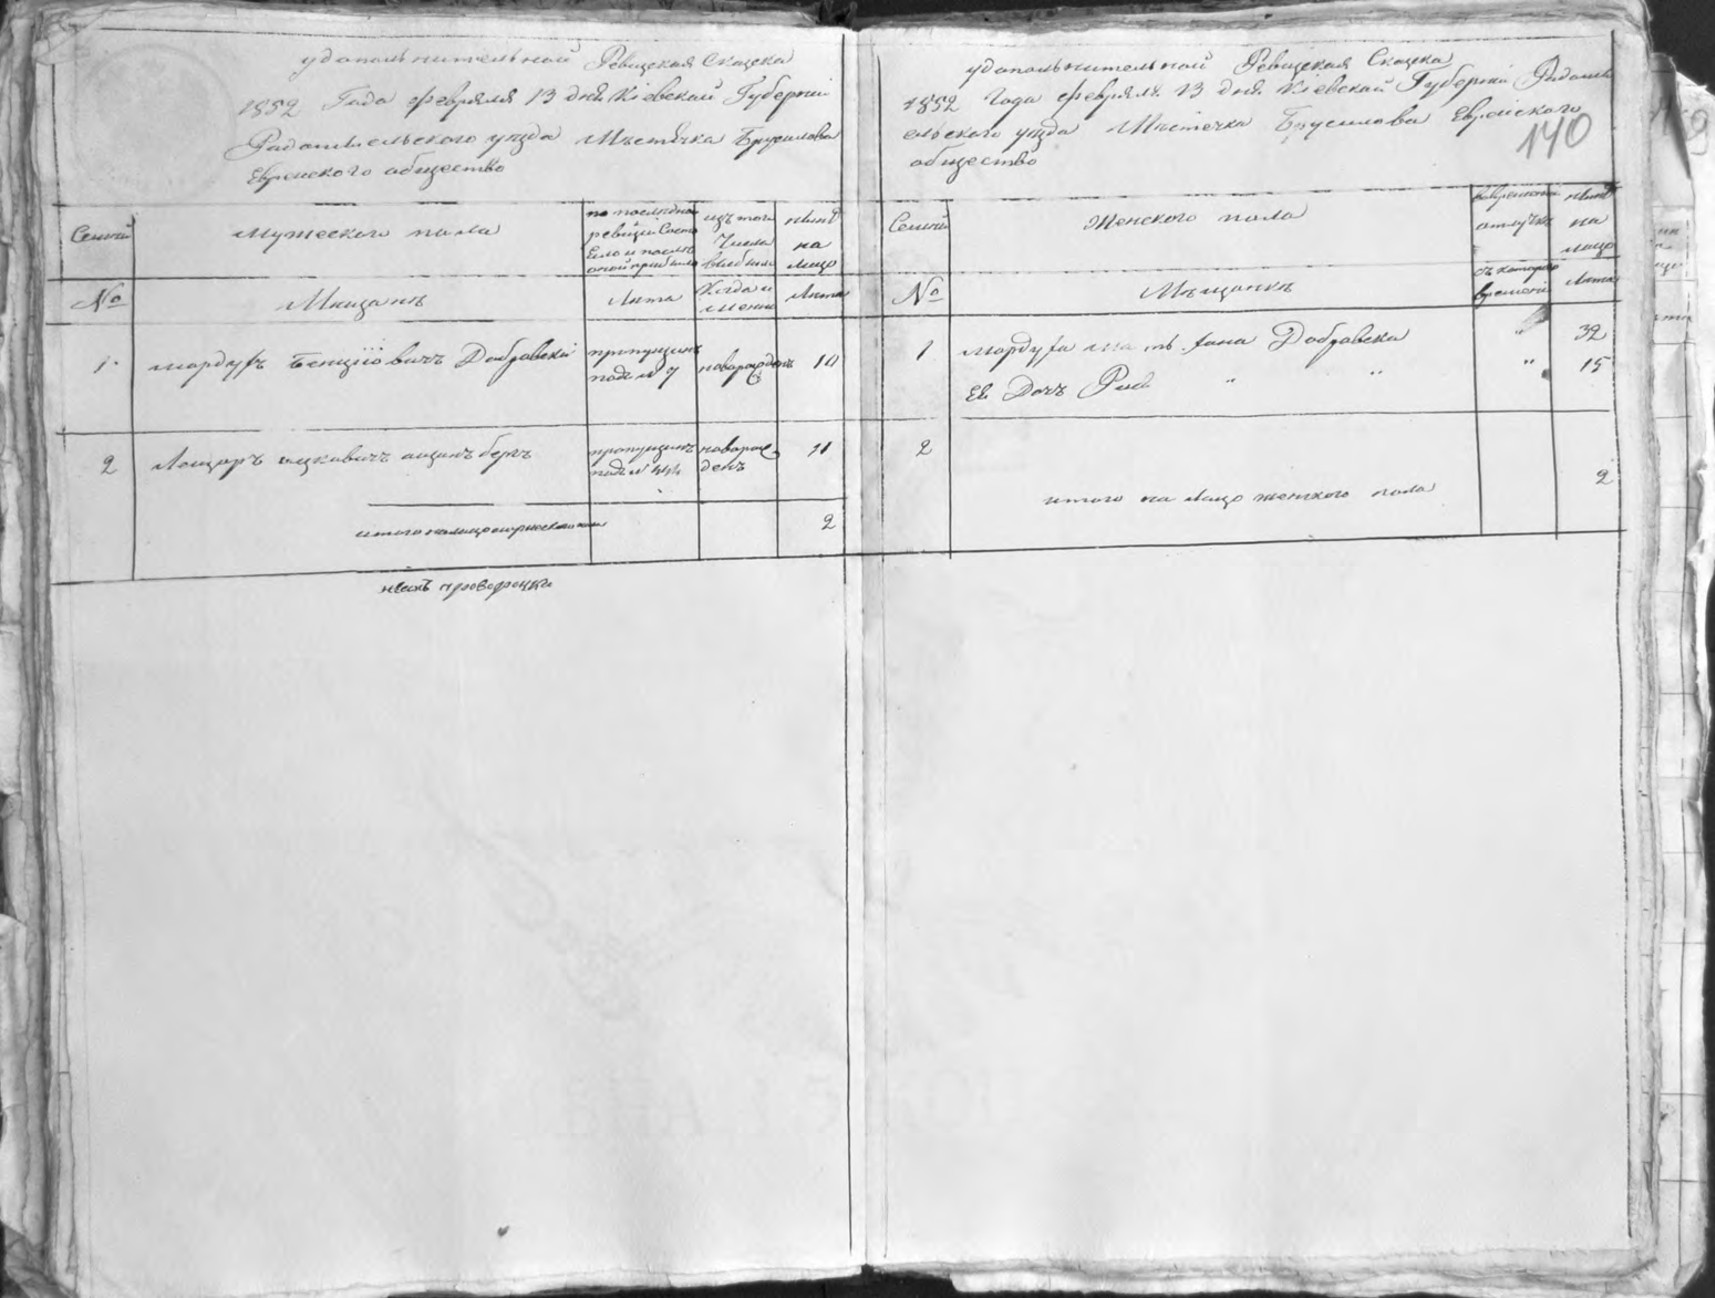 удополнительной Ревизская Сказска
1852 Года февраля 13 дня Кіевской Губерніи
Радомысельского уезда Мѣстечка Брусилова
Еврейского общество
Семей
Мужеского пола
по последной
ревизіи Состо
яло и после
оной прибыло
изъ того
Числа
выбыло
ныне
на
лицо
№
Мещане
Лета
Когда и
имено
Лета
1
мордухъ Бенціоновичъ Добравский
пропущенъ
подъ № 7
новорожденъ
10
2
Лейзоръ ицковичъ
пропущенъ
подъ № 44
новорож
денъ
11
итого налицо мужеского пола
2
удополнительной Ревизская Сказска
1852 Года февраля 13 дня Кіевской Губерніи Радомы
ельского уезда Мѣстечка Брусилова Еврейского
общество
140
Семей
Женского пола
вовременной
отлучке
ныне
на
лицо
№
Мещанке
съ которого
времени
Лета
1
мордуха мать Хана Добравска
"
32
Ея Дочъ " "
"
15
2
итого на лицо женского пола
2